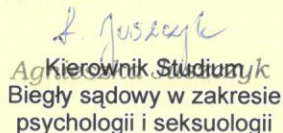 A. Juszczyk
Agnieszka Juszczyk
Kierownik Studium
Biegły sądowy w zakresie
psychologii i seksuologii